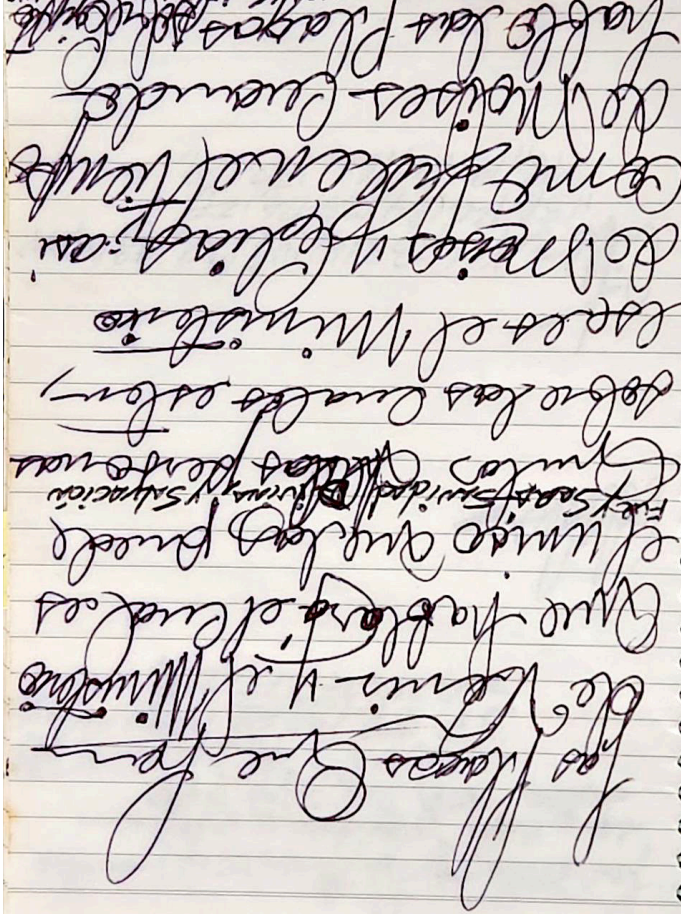 Las Plagas Que han
de Venir y el Ministerio
Que hablará el cual es
el único que las puede
Fe y Sanidad Divina y Salvación
Quitar de las personas
sobre las cuales estén,
ese es el Ministerio
de Moisés y Elías, así
como fue en el tiempo
de Moisés cuando
habló las Plagas sobre Egipto